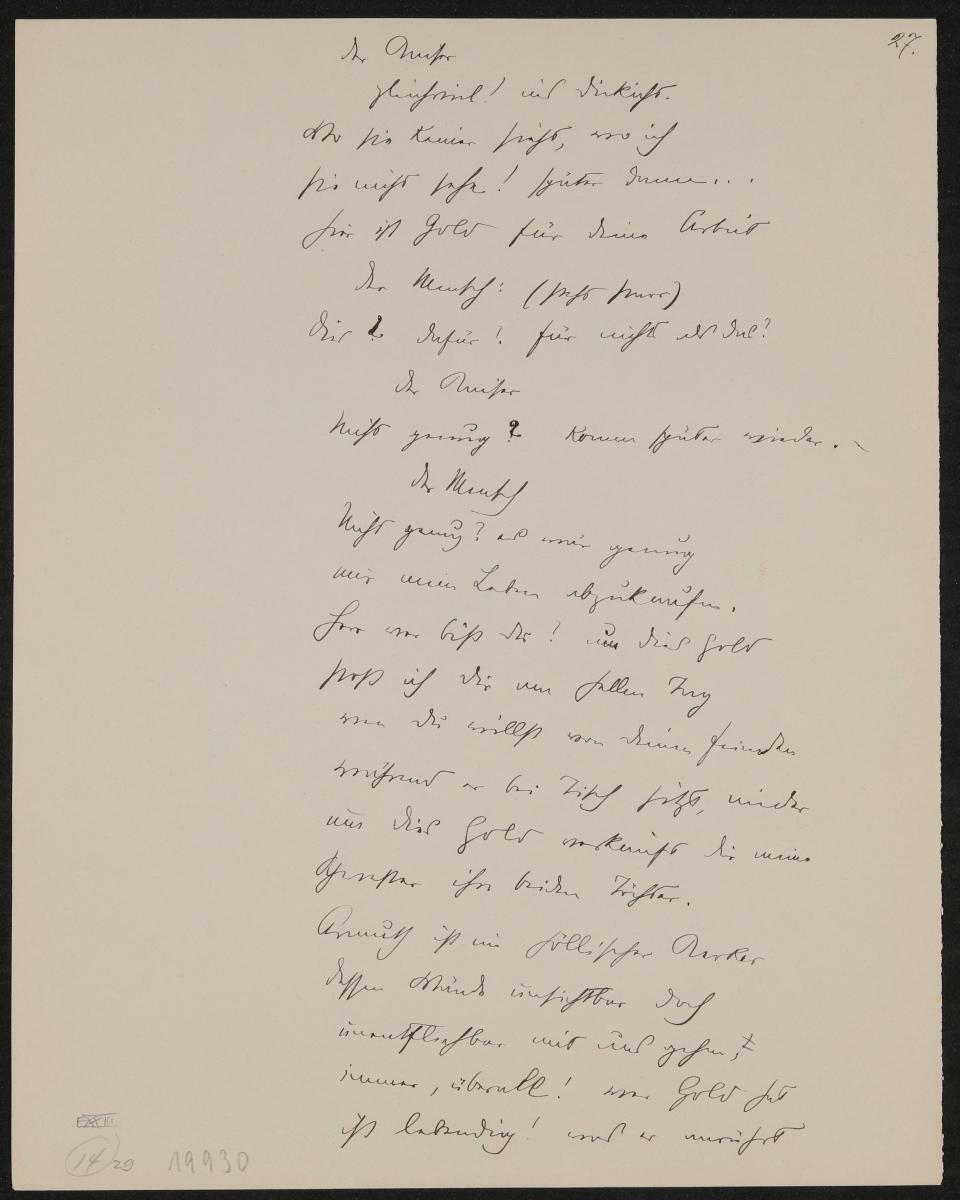 27.
der Kaiser
gleichviel! ins Dickicht.
Wo sie Keiner sieht, wo ich
sie nicht sehe! später dann...
hier ist Gold für deine Arbeit
der Mensch: (steht starr)
Dies? dafür! für nichts als das?
der Kaiser
Nicht genug? Komm später wieder.
der Mensch
Nicht genug? es wär genug
mir mein Leben abzukaufen.
Herr wer bist du? um dies Gold
stoß ich dir am hellen Tag
wen du willst von deinen Feinden
während er bei Tisch sitzt, nieder
um dies Gold verkauft dir meine
Schwester ihre beiden Töchter.
Armuth ist ein höllischer Kerker
dessen Wände unsichtbar doch
unentfliehbar mit uns gehen,
immer, überall! wer Gold hat
ist lebendig! was er anrührt
14 29 19930